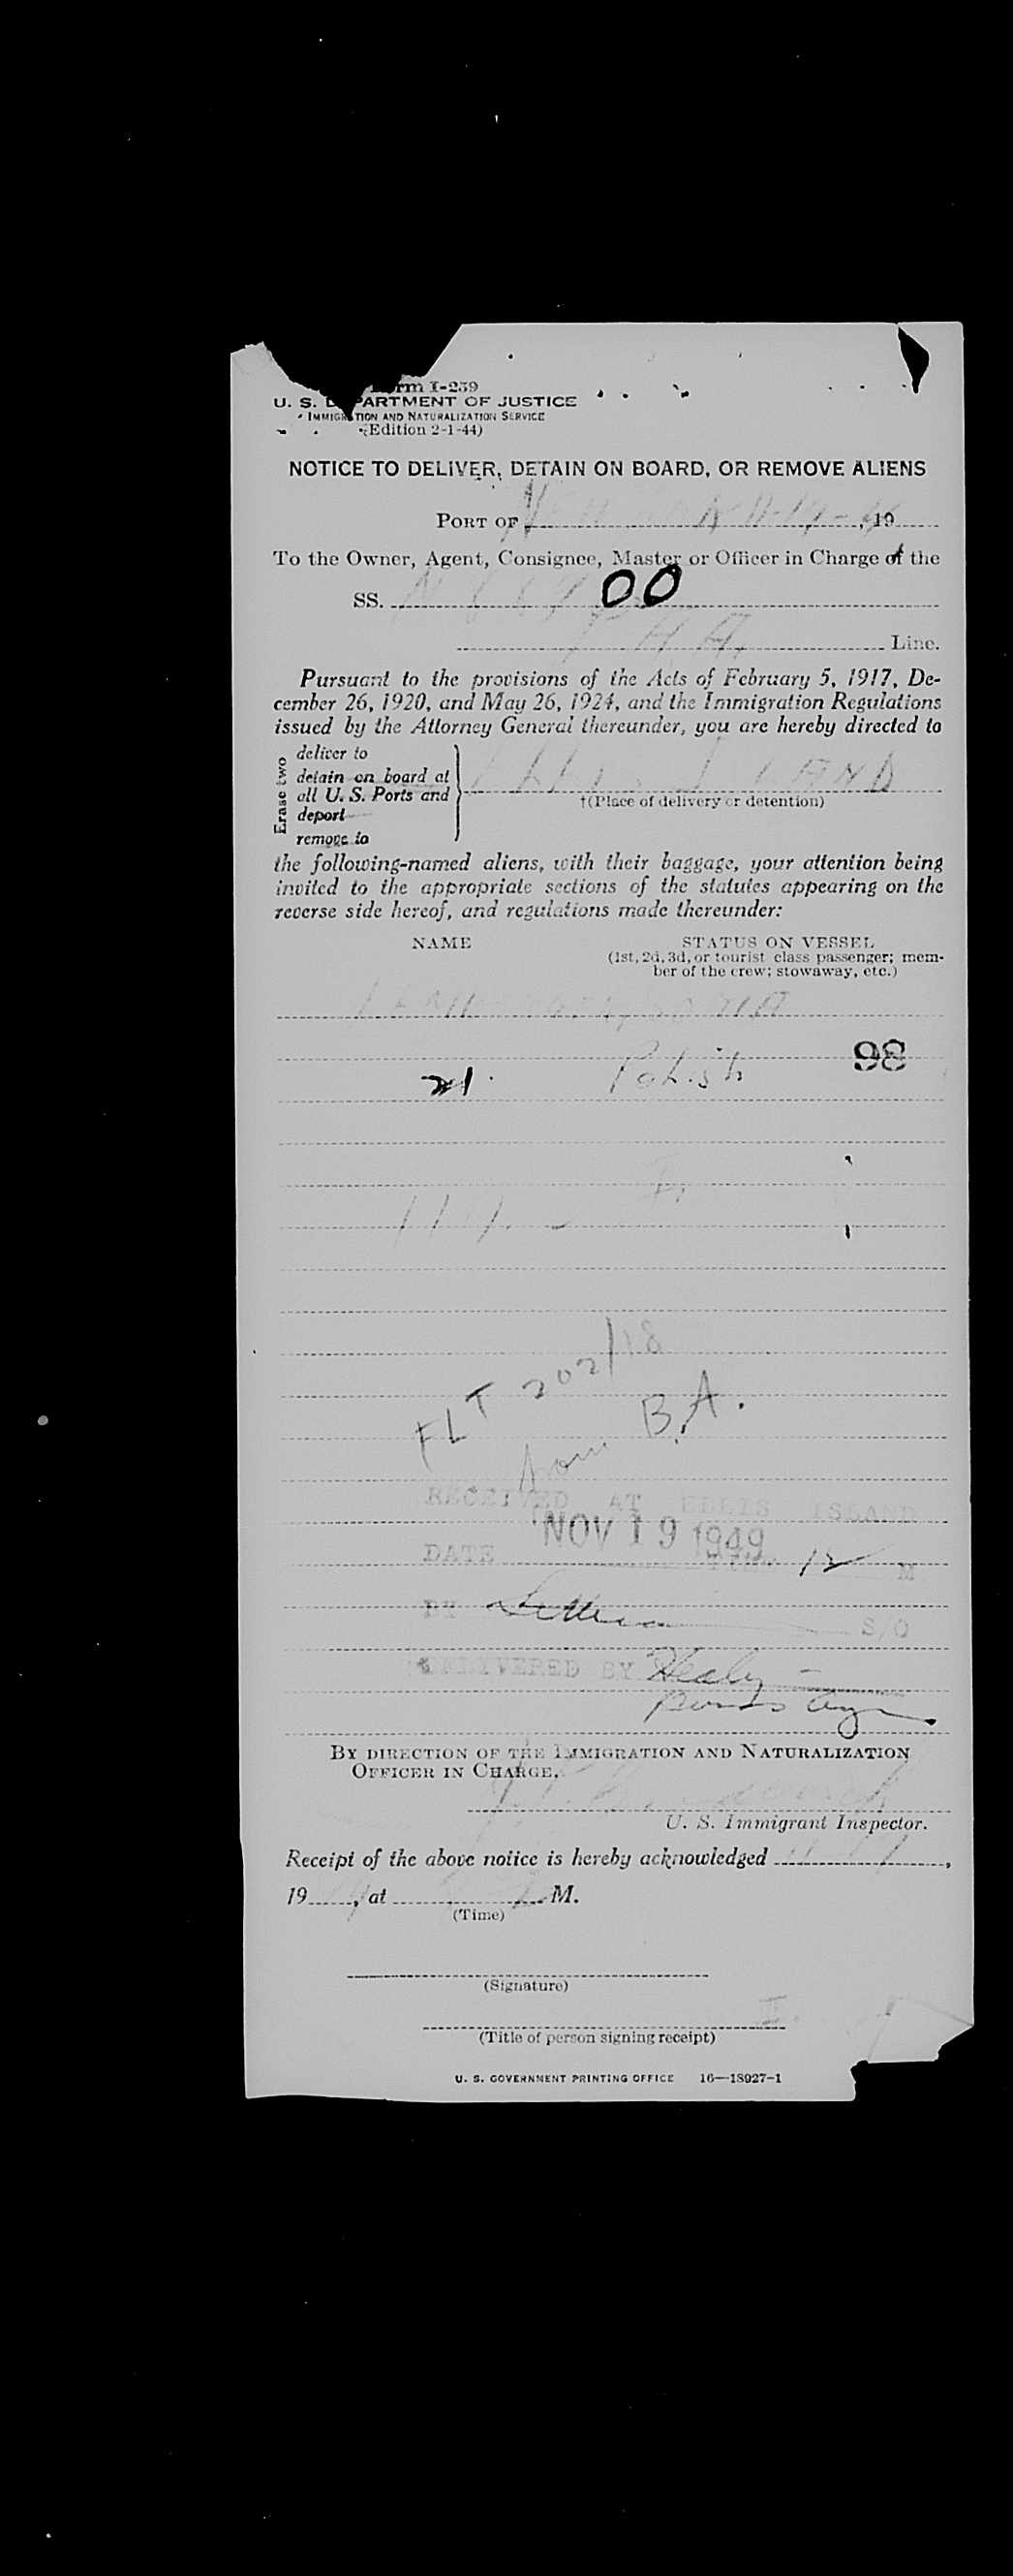 Form I-259
U. S. DEPARTMENT OF JUSTICE
IMMIGRATION AND NATURALIZATION SERVICE
(Edition 2-1-44)
NOTICE TO DELIVER, DETAIN ON BOARD, OR REMOVE ALIENS
PORT OF , 19
To the Owner, Agent, Consignee, Master or Officer in Charge of the
SS. 00
Line.
Pursuant to the provisions of the Acts of February 5, 1917, De-
cember 26, 1920, and May 26, 1924, and the Immigration Regulations
issued by the Attorney General thereunder, you are hereby directed to
Erase two
deliver to
detain on board at
all U. S. Ports and
deport
remove to
ISLAND
†(Place of delivery or detention)
the following-named aliens, with their baggage, your attention being
invited to the appropriate sections of the statutes appearing on the
reverse side hereof, and regulations made thereunder:
NAME STATUS ON VESSEL
(1st, 2d, 3d, or tourist class passenger; mem-
ber of the crew; stowaway, etc.)
98
21. Polish
FLT 202/18
from B.A.
RECEIVED AT ELLIS ISLAND
DATE NOV 19 1949 12 M
BY S/O
DELIVERED BY Healy
BY DIRECTION OF THE IMMIGRATION AND NATURALIZATION
OFFICER IN CHARGE.
U. S. Immigrant Inspector.
Receipt of the above notice is hereby acknowledged ,
19 , at M.
(Time)
(Signature)
(Title of person signing receipt)
U. S. GOVERNMENT PRINTING OFFICE 16—18927-1